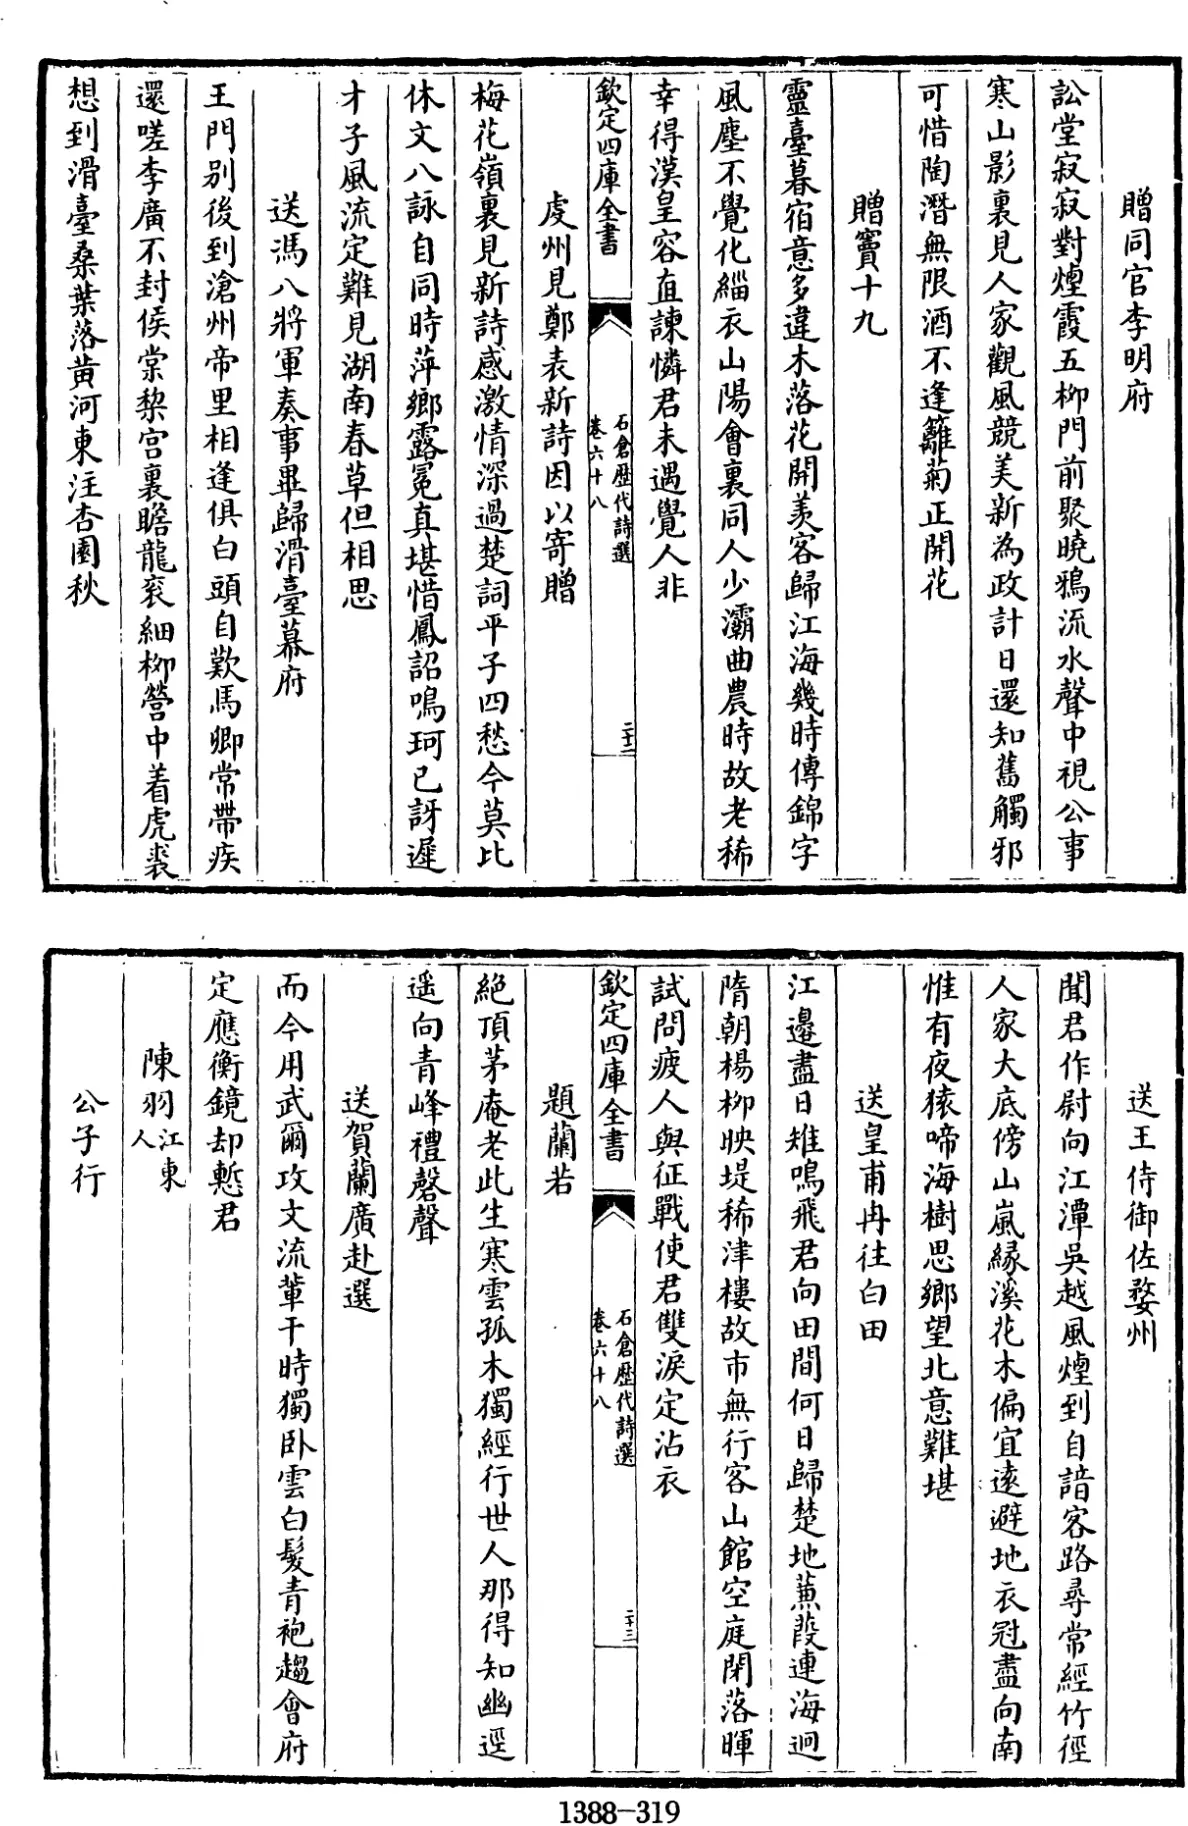 贈同官李明府
訟堂寂寂對煙霞五栁門前聚曉鴉流水聲中視公事
寒山影裏見人家觀風競美新為政計日還知舊觸邪
可惜陶潛無限酒不逢籬菊正開花
贈竇十九
靈臺暮宿意多違木落花開羡客歸江海幾時傳錦字
風塵不覺化緇衣山陽會裏同人少灞曲農時故老稀
幸得漢皇容直諫憐君未遇覺人非
欽定四庫全書
石倉歴代詩選
卷六十八
二十二
虔州見鄭表新詩因以寄贈
梅花嶺裏見新詩感激情深過楚詞平子四愁今莫比
休文八詠自同時萍鄉露冕真堪惜鳳詔鳴珂已訝遲
才子風流定難見湖南春草但相思
送馮八將軍奏事畢歸滑臺幕府
王門别後到滄州帝里相逢俱白頭自歎馬卿常帶疾
還嗟李廣不封侯棠棃宫裏瞻龍衮細栁營中着虎裘
想到滑臺桑葉落黄河東注杏園秋
送王侍御佐婺州
聞君作尉向江潭吳越風煙到自諳客路尋常經竹徑
人家大底傍山嵐緣溪花木偏宜逺避地衣冠盡向南
惟有夜猿啼海樹思鄉望北意難堪
送皇甫冉往白田
江邊盡日雉鳴飛君向田間何日歸楚地蒹葭連海迥
隋朝楊栁映堤稀津樓故市無行客山館空庭閉落暉
試問疲人與征戰使君雙淚定沾衣
欽定四庫全書
石倉歴代詩選
卷六十八
二十三
題蘭若
絶頂茅庵老此生寒雲孤木獨經行世人那得知幽逕
遥向青峰禮磬聲
送賀蘭廣赴選
而今用武爾攻文流輩干時獨卧雲白髮青袍趨會府
定應衡鏡却慙君
陳羽江東人
公子行
1388-319